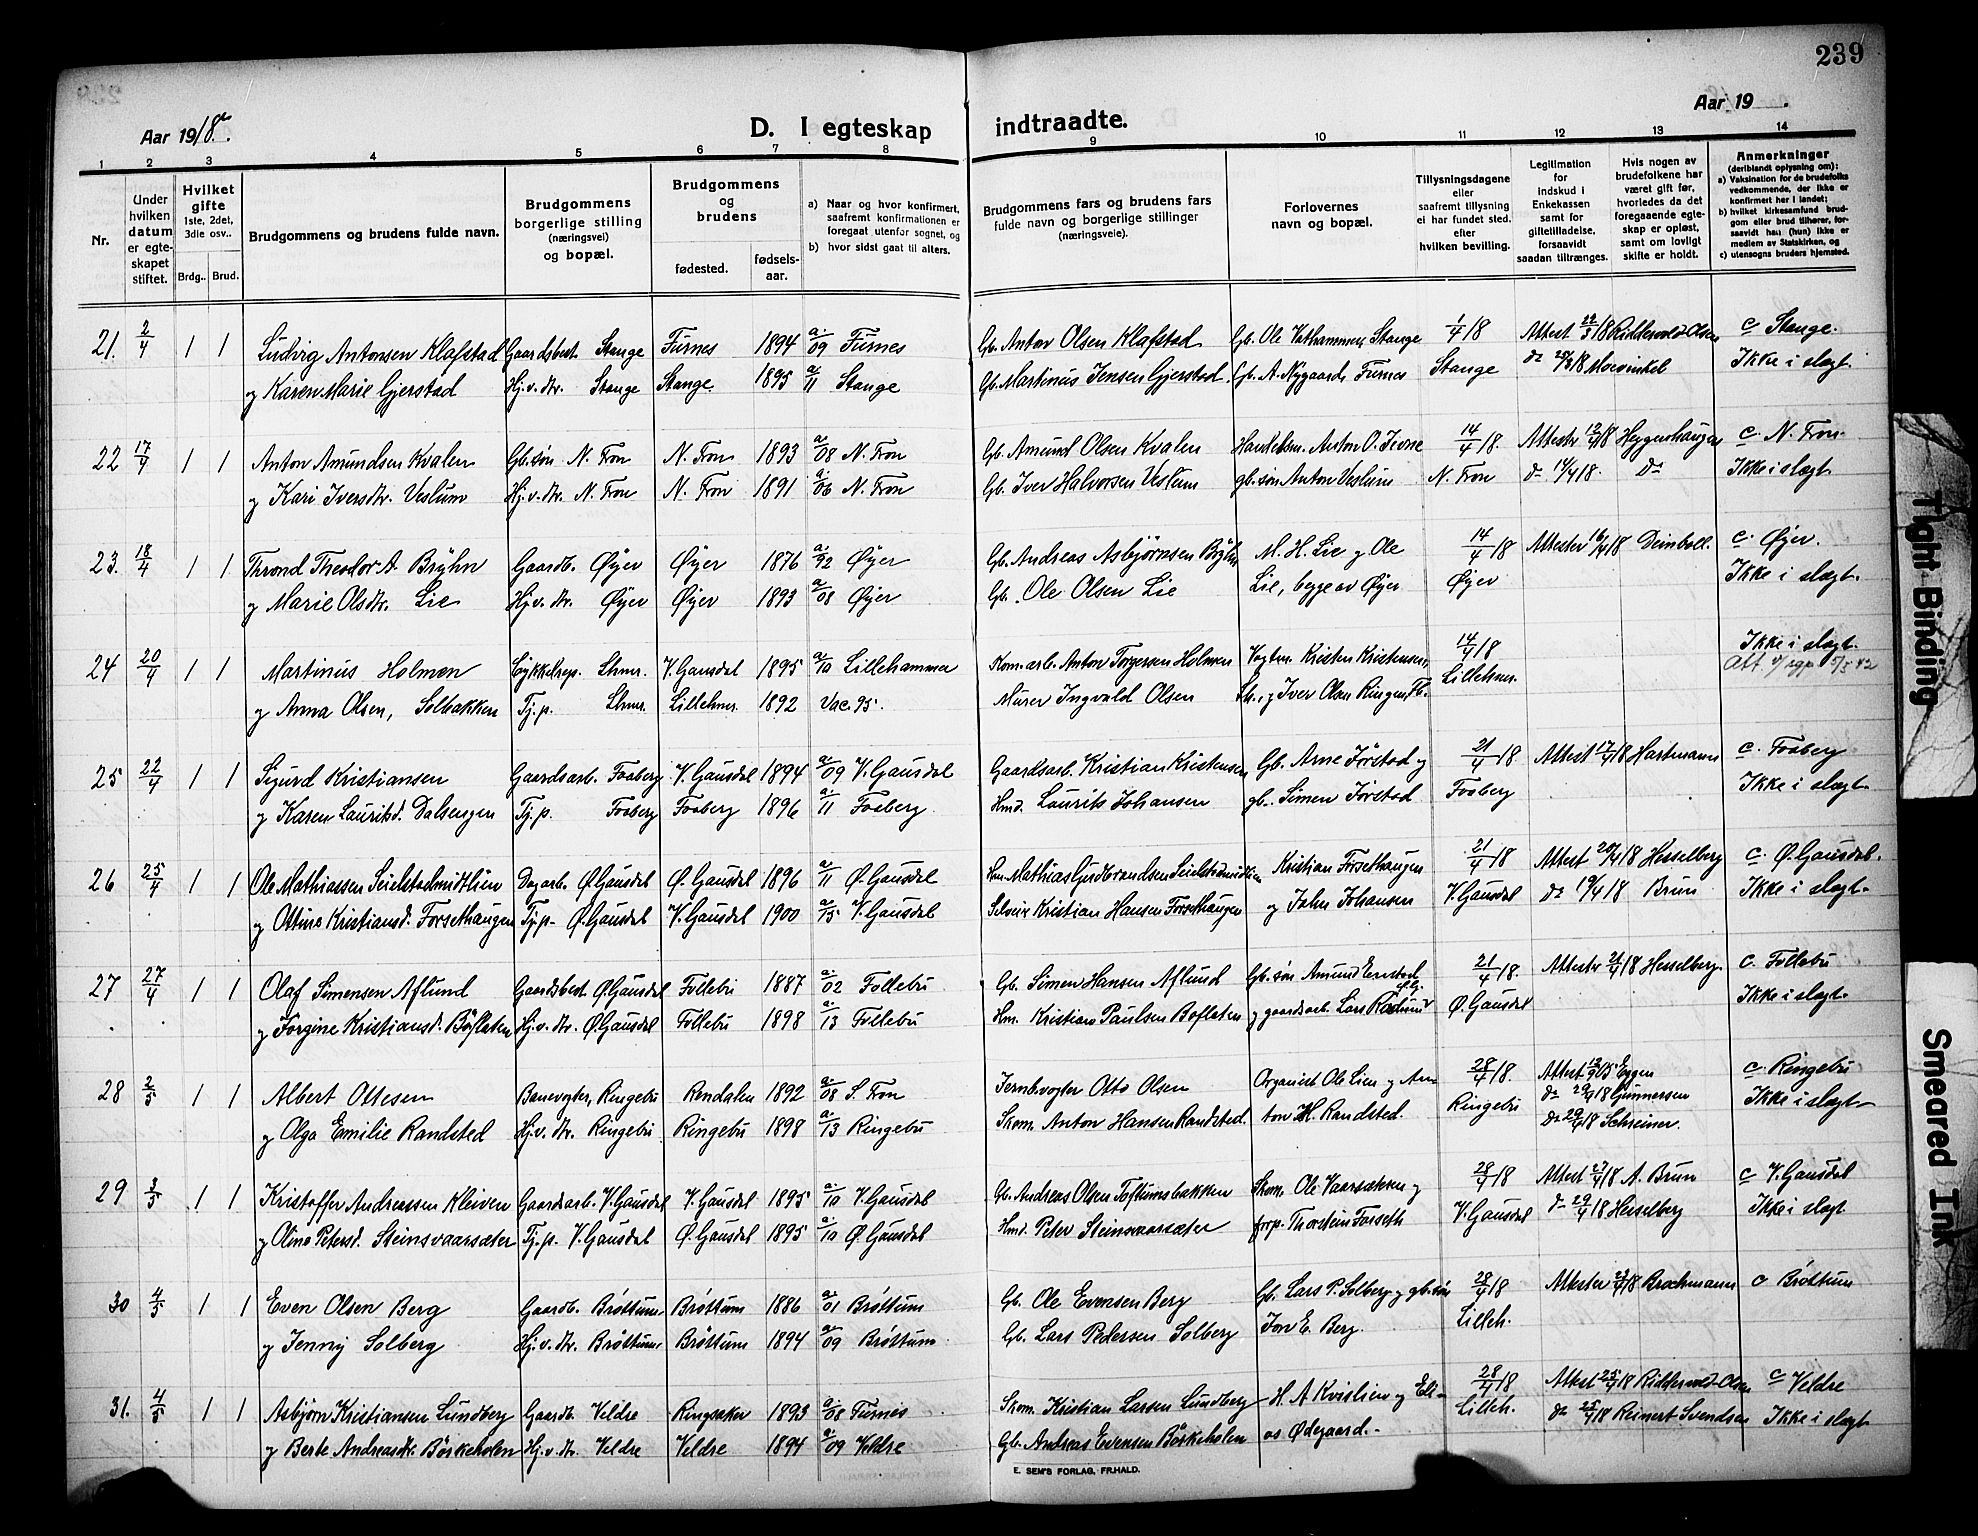 239
Aar 1918.
Aar 19 .
D. I egteskap indtraadte.
1 2 3 4 5 6 7 8 9 10 11 12 13 14
Nr.
Under hvilken datum er egte-skapet stiftet.
Hvilket gifte 1ste, 2det, 3die osv..
Brdg.. Brud.
Brudgommens og brudens fulde navn.
Brudgommens borgerlige stilling (næringsvei) og bopæl.
Brudgommens og brudens
fødested. fødsels-aar.
a) Naar og hvor konfirmert, saafremt konfirmationen er foregaat utenfor sognet, og
b) hvor sidst gaat til alters.
Brudgommens fars og brudens fars fulde navn og borgerlige stillinger (næringsveie).
Forlovernes navn og bopæl.
Tillysningsdagene eller saafremt tillysning ei har fundet sted. efter hvilken bevilling.
Legitimation for indskud i Enkekassen samt for giftetilladelse, forsaavidt saadan tiltrænges.
Hvis nogen av brudefolkene har været gift før, hvorledes da det foregaaende egte-skap er opløst, samt om lovligt skifte er holdt.
Anmerkninger (deriblandt oplysning om): a) Vaksination for de brudefolks vedkommende, der ikke er konfirmert her i landet; b) hvilket kirkesamfund brud-gom eller brud tilhører, for-saavidt han (hun) ikke er medlem av Statskirken, og c) utensogns bruders hjemsted.
21. 2/4 1 1 Ludvig Antonsen Klafstad Gaardsbest. Stange Furnes 1894 a. 09 Furnes Gb. Anton Olsen Klafstad Gb. Ole Stange 1/4 18 Attest 18 Riddervold-Olsen c Stange.
og Karen Marie Gjerstad Hj.v. dtr. Stange Stange 1895 a. 11 Stange Gb. Martinus Jensen Gjerstad. Gb. A. Nygaard, Furnes Stange do 18 Movinkel Ikke i slegt.
22 17/4 1 1 Anton Amundsen Kvalen Gb.søn N. Fron N. Fron 1893 a. 08 N. Fron Gb. Amund Olsen Kvalen Anton O. 14/4 18. Attester 12/4 18 Heggenhaugen c. N. Fron.
og Kari Iversdtr. Veslum Hj.v. dtr. N. Fron N. Fron 1891 a. 06 N. Fron Gb. Iver Halvorsen Veslum gb.søn Anton Veslum N. Fron do 18. do Ikke i slegt.
23. 18/4 1 1 Thrond Theodor A. Bryhn Gaardb. Øyer Øyer 1876 a. 92 Øyer Gb. Andreas Asbjørnsen Bryhn M. H. Lie og Ole 14/4 18 Attester 16/4 18 Deinboll. c. Øyer.
og Marie Olsdtr. Lie Hj.v. dtr. Øyer Øyer 1893 a. 08 Øyer Gb. Ole Olsen Lie Lie, begge av Øyer Øyer Ikke i slegt.
24 20/4 1 1 Martinus Holmen Cykkelrep. Lhmr. V. Gausdal 1895 a. 10 Lillehammer Kom.arb. Anton Torgersen Holmen Kristen Kristensen, 14/4 18 Ikke i slegt.
og Anna Olsen, Solbakken Tj.p. Lhmr. Lillehmr. 1892 Vac. 95. Murer Ingvald Olsen Lh., og Iver Olsen Ringen, Fb. Lillehmr. Att. 5/5 42
25 22/4 1 1 Sigurd Kristiansen Gaardsarb. Faaberg V. Gausdal 1894 a. 09 V. Gausdal Gaardsarb. Kristian Kristensen Gb. Arne Jørstad og 21/4 18 Attest 17/4 18 Hartmann c. Faaberg
og Karen Lauritsd. Dalsengen Tj.p. Faaberg Faaberg 1896 a. 11 Faaberg. Hmd. Laurits Johansen gb. Simen Jørstad Faaberg Ikke i slegt.
26 25/4 1 1 Ole Mathiassen Seielstadmidtlien Dagarb. Ø. Gausdal Ø. Gausdal 1896 a. 11 Ø. Gausdal Hm. Mathias Gudbrandsen Seielstadmidtlien Kristian Forsethaugen 21/4 18 Attest 20/4 18 Hesselberg c. Ø. Gausdal.
og Ottine Kristiansd. Forsethaugen Tj.p. Ø. Gausdal V. Gausdal 1900 a. 15 V. Gausdal Selveir Kristian Hansen Forsethaugen og John Johansen V. Gausdal do 19/4 18 Brun Ikke i slegt.
27 27/4 1 1 Olaf Simensen Aflund Gaardsbest. Ø. Gausdal Follebu 1887 a. 02 Follebu Gb. Simen Hansen Aflund Gb.søn Amund 21/4 18. Attester 21/4 18 Hesselberg. c. Follebu
og Jørgine Kristiansd. Bøflaten Hj.v. dtr. Ø. Gausdal Follebu 1898 a. 13 Follebu Hm. Kristian Paulsen Boflaten og gaardsarb. Lars Ø. Gausdal Ikke i slegt.
28 2/5 1 1 Albert Ottesen Banevogter, Ringebu Rendalen 1892 a. 08 S. Fron Jernb.vogter Otto Olsen Organist Ole Lien og An- 28/4 18. Attest 15 Eggen c. Ringebu
og Olga Emilie Randsted Hj.v. dtr. Ringebu Ringebu 1898 a. 13 Ringebu Skom. Anton Hansen Randsted. ton H. Randsted. Ringebu do 29/4 18 Gunnersen Ikke i slegt.
do 29/4 18 Schreiner.
29 3/5 1 1 Kristoffer Andreassen Kleiven Gaardsarb. V. Gausdal V. Gausdal 1895 a. 10 V. Gausdal Gb. Andreas Olsen Toftumsbakken Skom. Ole og 28/4 18 Attest 27/4 18 A. Brun c V. Gausdal
og Oline Petersd. Steinsvaarsæter Tj.p. V. Gausdal Ø. Gausdal 1895 a. 10 Ø. Gausdal Hmd. Peter Steinsvaarsæter forp. Thorstein Forseth V. Gausdal do 29/4 18 Hesselberg Ikke i slegt
30 4/5 1 1 Even Olsen Berg Gaardb. Brøttum Brøttum 1886 a. 01 Brøttum Gb. Ole Evensen Berg Gb. Lars P. Solberg og gb.søn 28/4 18 Attester 23/4 18 Brochmann c Brøttum
og Jenny Solberg Hj.v. dtr. Brøttum Brøttum 1894 a. 09 Brøttum. Gb. Lars Pedersen Solberg Jon E. Berg. Lilleh.
31. 4/5 1 1 Asbjørn Kristiansen Lundberg Gaardb. Veldre Ringsaker 1893 a. 08 Furnes Skom. Kristian Larsen Lundberg H. A. Kvislien og Eli- 28/4 18 Attest 25/4 18 Riddervold-Olsen c Veldre
og Berte Andreasdtr. Børkeholen Hj.v. dtr. Veldre Veldre 1894 a. 09 Veldre Gb. Andreas Evensen Børkeholen as Ødegaard. Lilleh. do 25/4 18 Reinert Svendsen Ikke i slegt
E. SEM'S FORLAG, FR.HALD.
Tight Binding
Smeared Ink